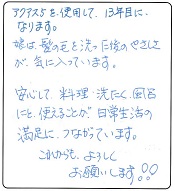 アクアス5を使用して、13年目に
なります。
娘は、髪の毛を洗った後のやさしさ
が、気に入っています。
安心して、料理・洗たく・風呂
にと、使えることが、日常生活の
満足に、つながっています。
これからも、よろしく
お願いします!!